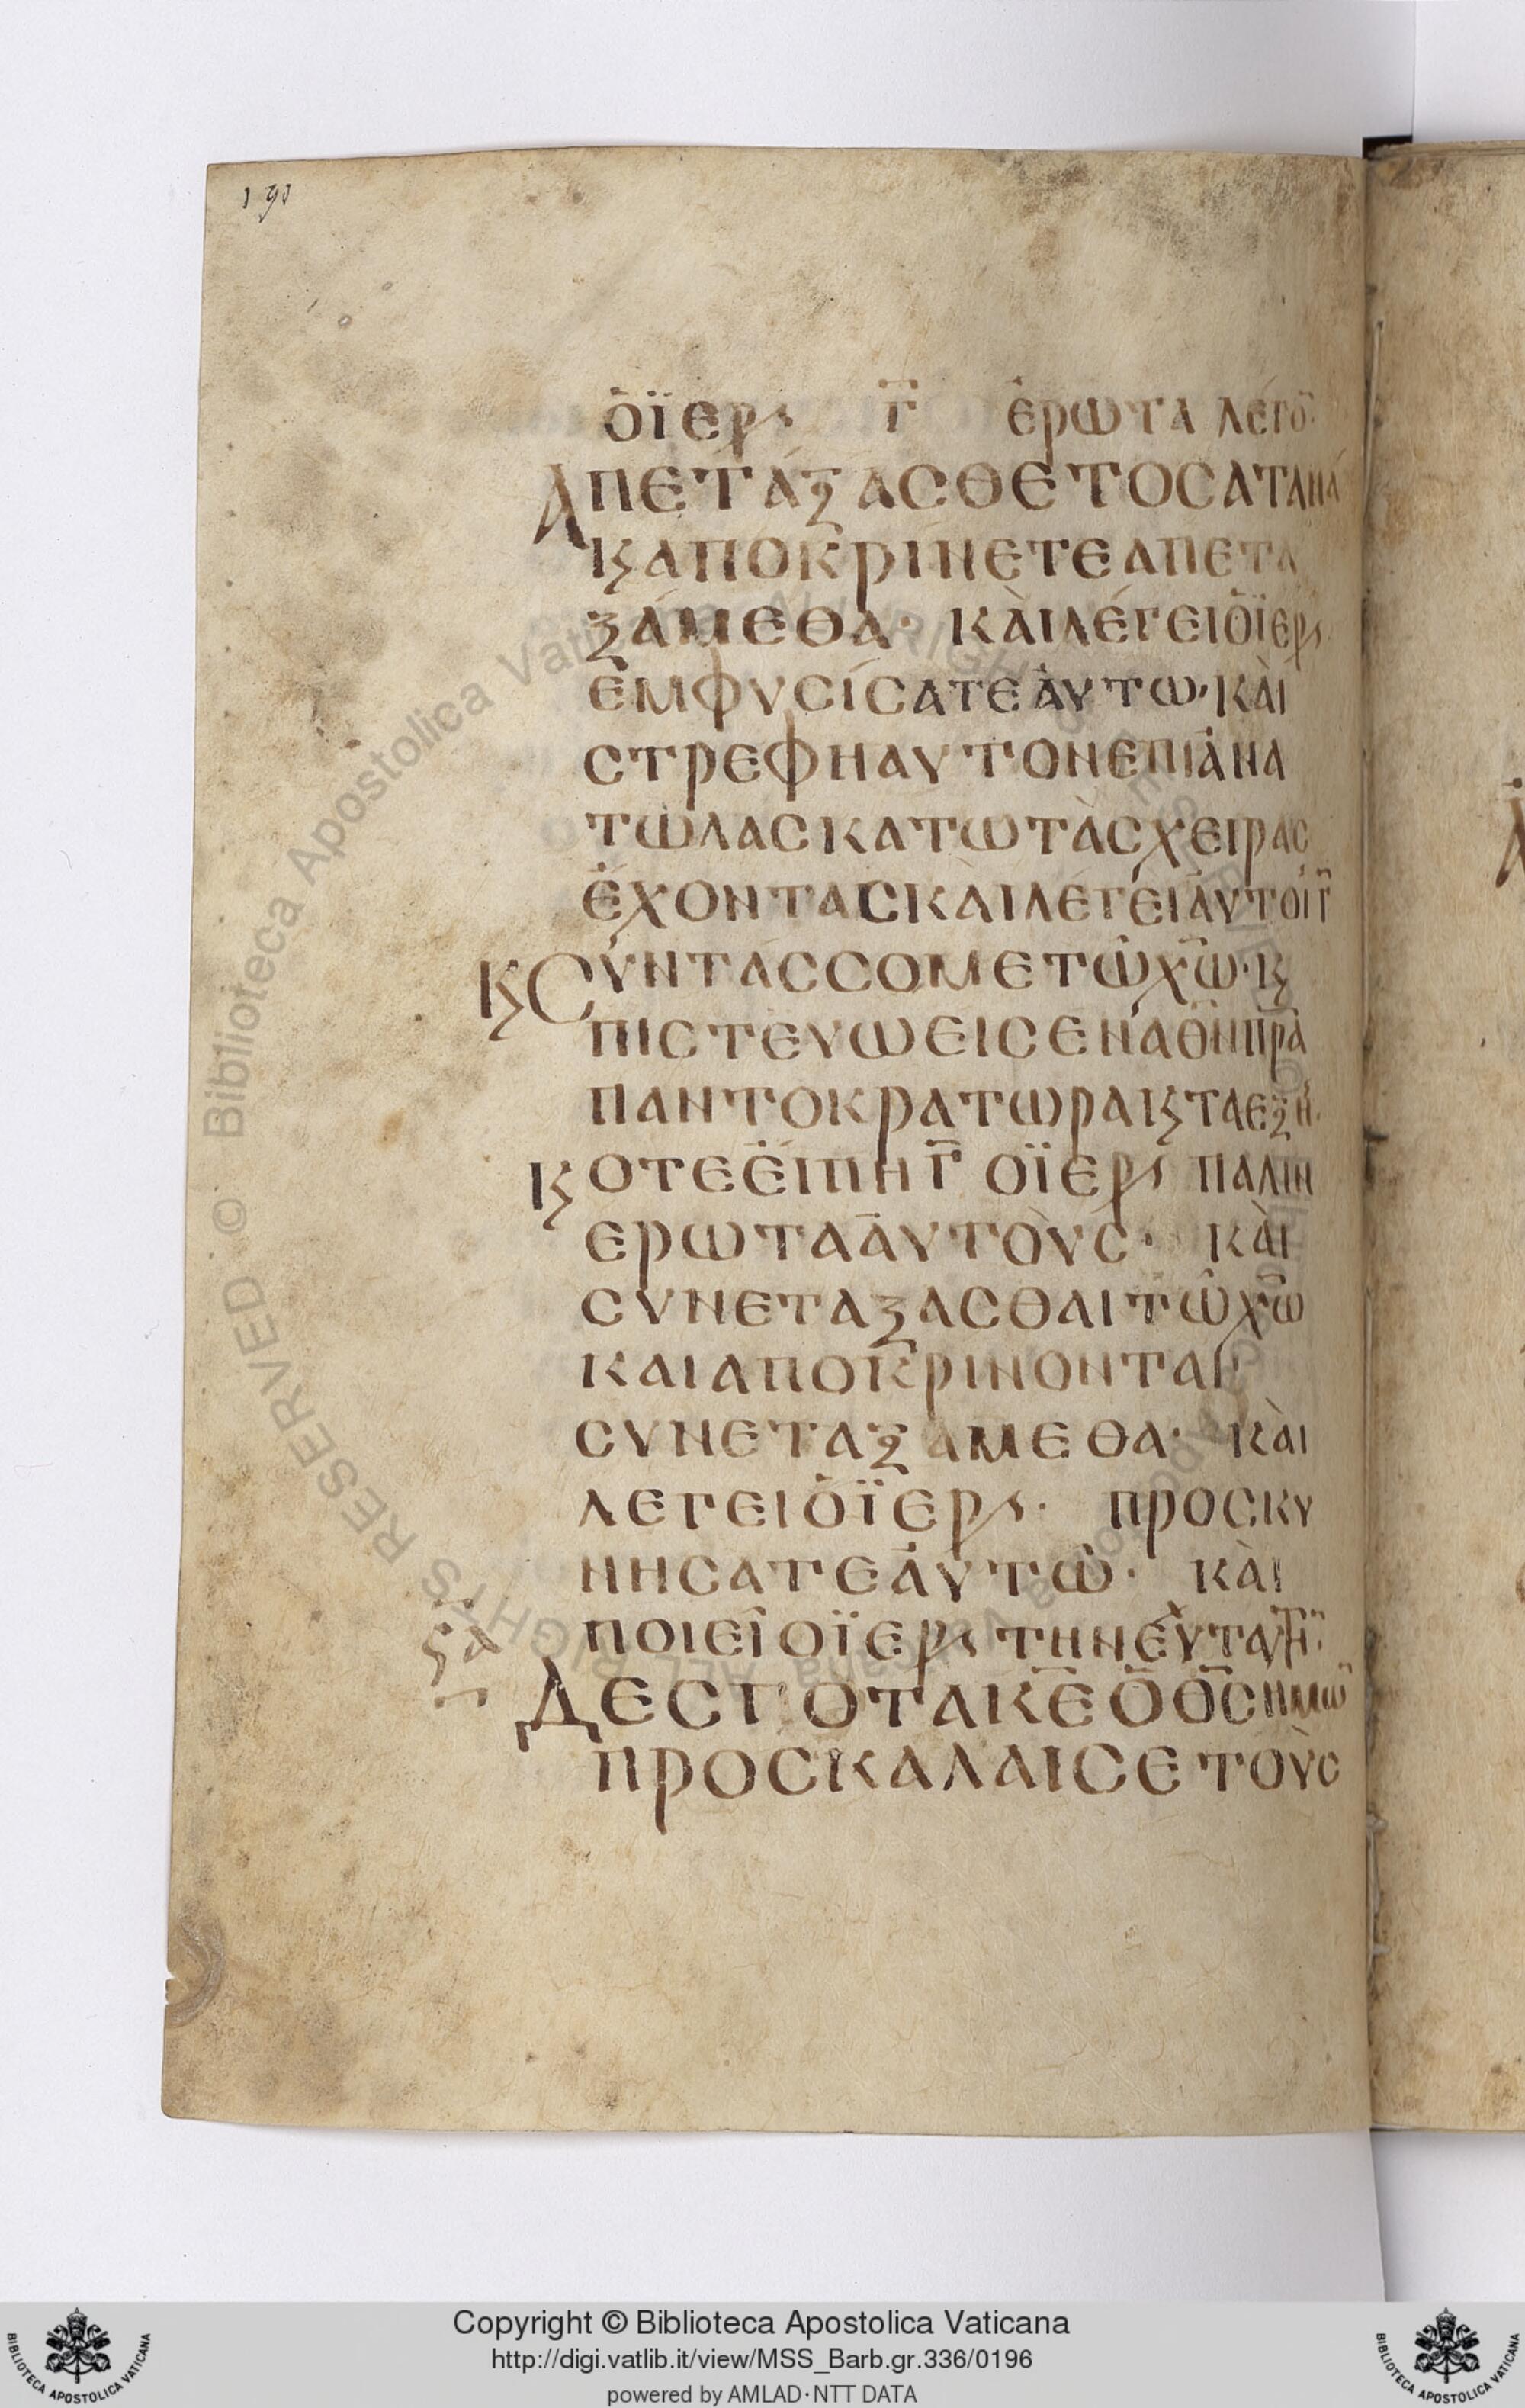 191
ὁ ϊερς γ̄ ἐρωτα λέγο
ΑΠΕΤΑΞΑΣΘΕΤΟΣΑΤΑΝΑ
ϗΑΠΟΚΡΙΝΕΤΕΑΠΕΤΑ
ΞΑΜΕΘΑ· ΚΑῚΛΕΓΕΙὉΪΕΡς
ΕΜΦΥΣΙΣΑΤΕΑΥΤΩ· ΚΑῚ
ΣΤΡΕΦΗΑΥΤΟΝΕΠΙΑΝΑ
ΤΩΛΑΣΚΑΤΩΤᾺΣΧΕΙΡΑΣ
ἘΧΟΝΤΑΣΚΑΙΛΕΓΕΙΑΥΤΟΙΓ̄
ϗΣΥΝΤΑΣΣΟΜΕΤΩΧ̅Ω̅·ϗ
ΠΙΣΤΕΥΩΕΙΣΕΝΑΘ̅Ν̅Π̅Ρ̅Α̅
ΠΑΝΤΟΚΡΑΤΩΡΑϗΤΑΕΞΗ·
ϗΟΤΕΕΙΠΗΓ̄ ΟΪΕΡς ΠΑΛΙΝ
ΕΡΩΤΑΑΥΤΟῪΣ· ΚΑῚ
ΣΥΝΕΤΑΞΑΣΘΑΙΤΩΧ̅Ω̅
ΚΑΙΑΠΟΚΡΙΝΟΝΤΑΙ
ΣΥΝΕΤΑΞΑΜΕΘΑ· ΚΑῚ
ΛΕΓΕΙὉΪΕΡς· ΠΡΟΣΚΥ
ΝΗΣΑΤΕΑΥΤΩ· ΚΑῚ
ΠΟΙΕΙΟΪΕΡςΤΗΝΕΥΤΑΥΤΗ·
ΔΕΣΠΟΤΑΚ̅Ε̅Ο̅Θ̅Σ̅ΗΜΩ
ΠΡΟΣΚΑΛΑΙΣΕΤΟῪΣ
Biblioteca Apostolica Vaticana ALL RIGHTS RESERVED ©
Copyright © Biblioteca Apostolica Vaticana
http://digi.vatlib.it/view/MSS_Barb.gr.336/0196
powered by AMLAD·NTT DATA
BIBLIOTECA APOSTOLICA VATICANA
BIBLIOTECA APOSTOLICA VATICANA